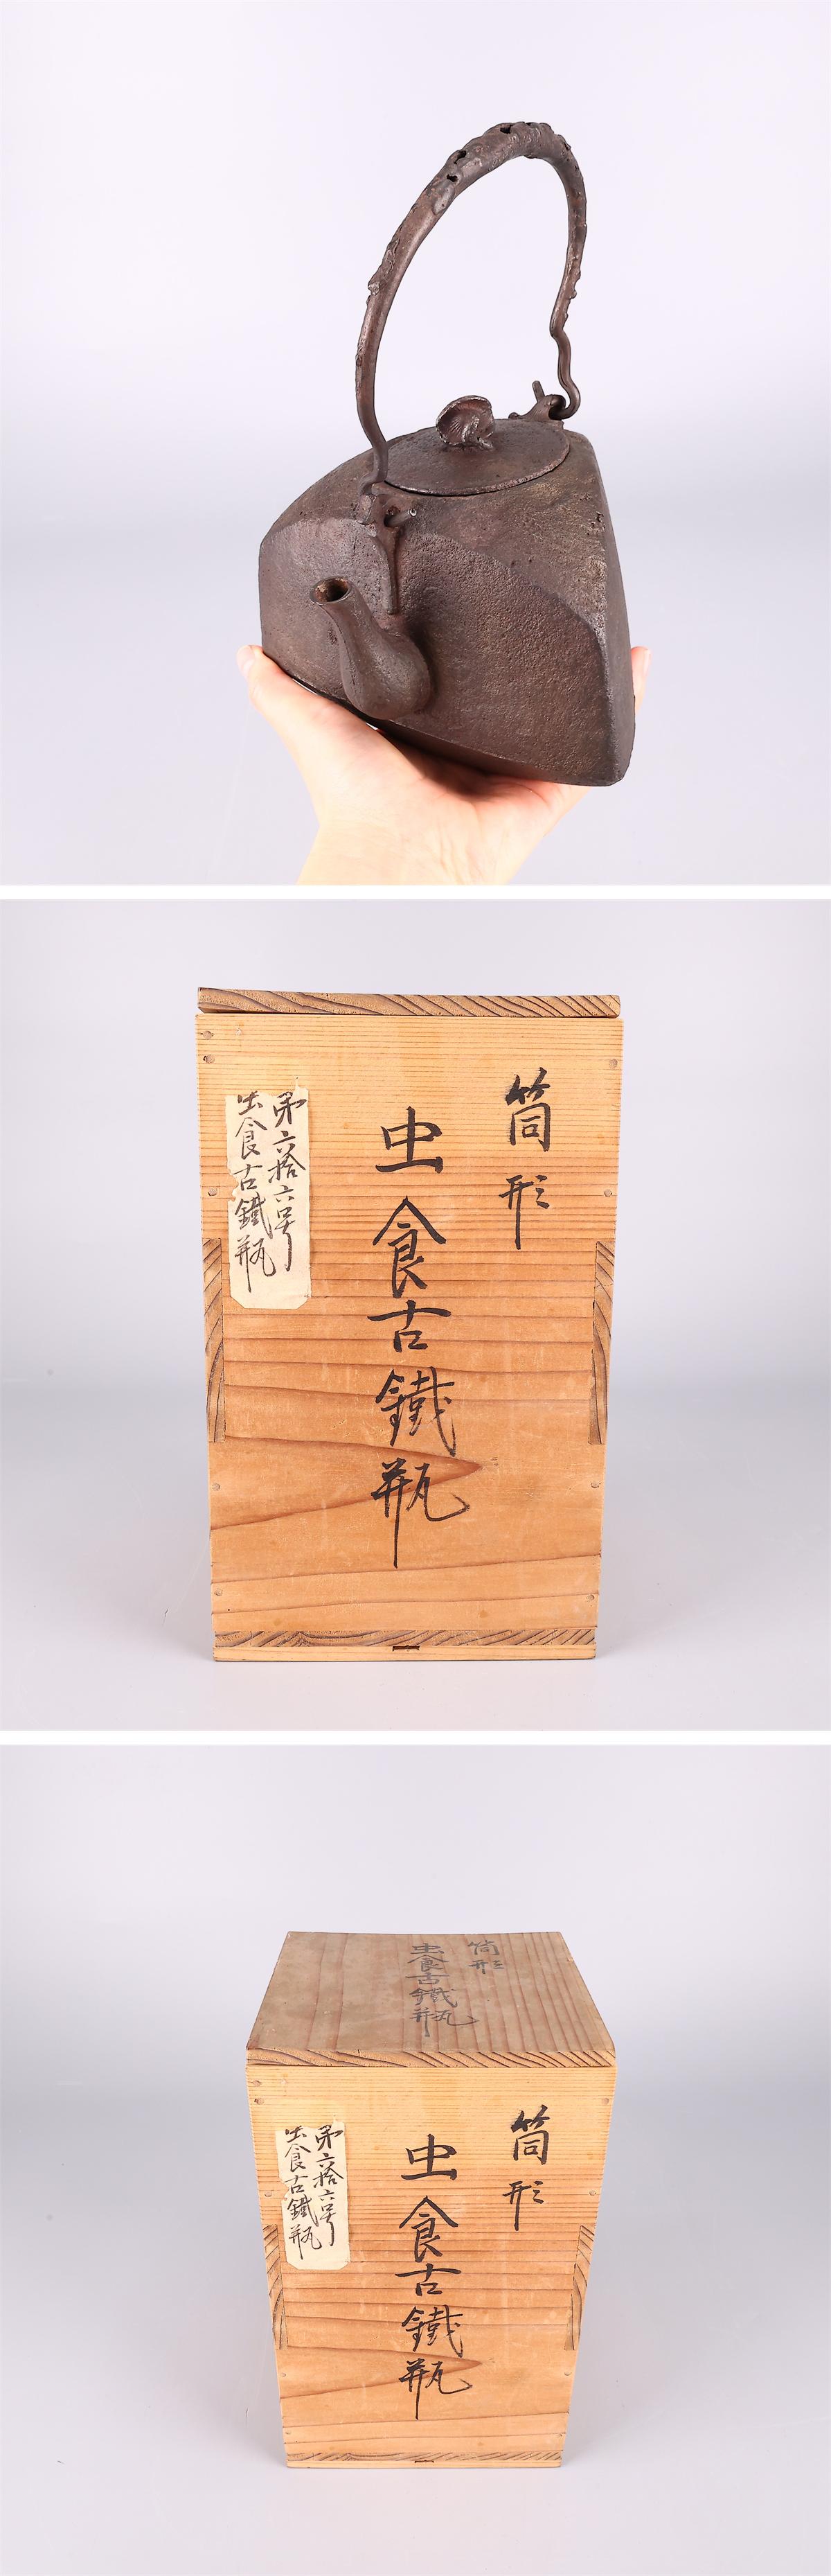 筒形
虫食古鐵瓶
第六拾六号
虫食古鐵瓶
筒形
虫食古鐵瓶
筒形
虫食古鐵瓶
第六拾六号
虫食古鐵瓶